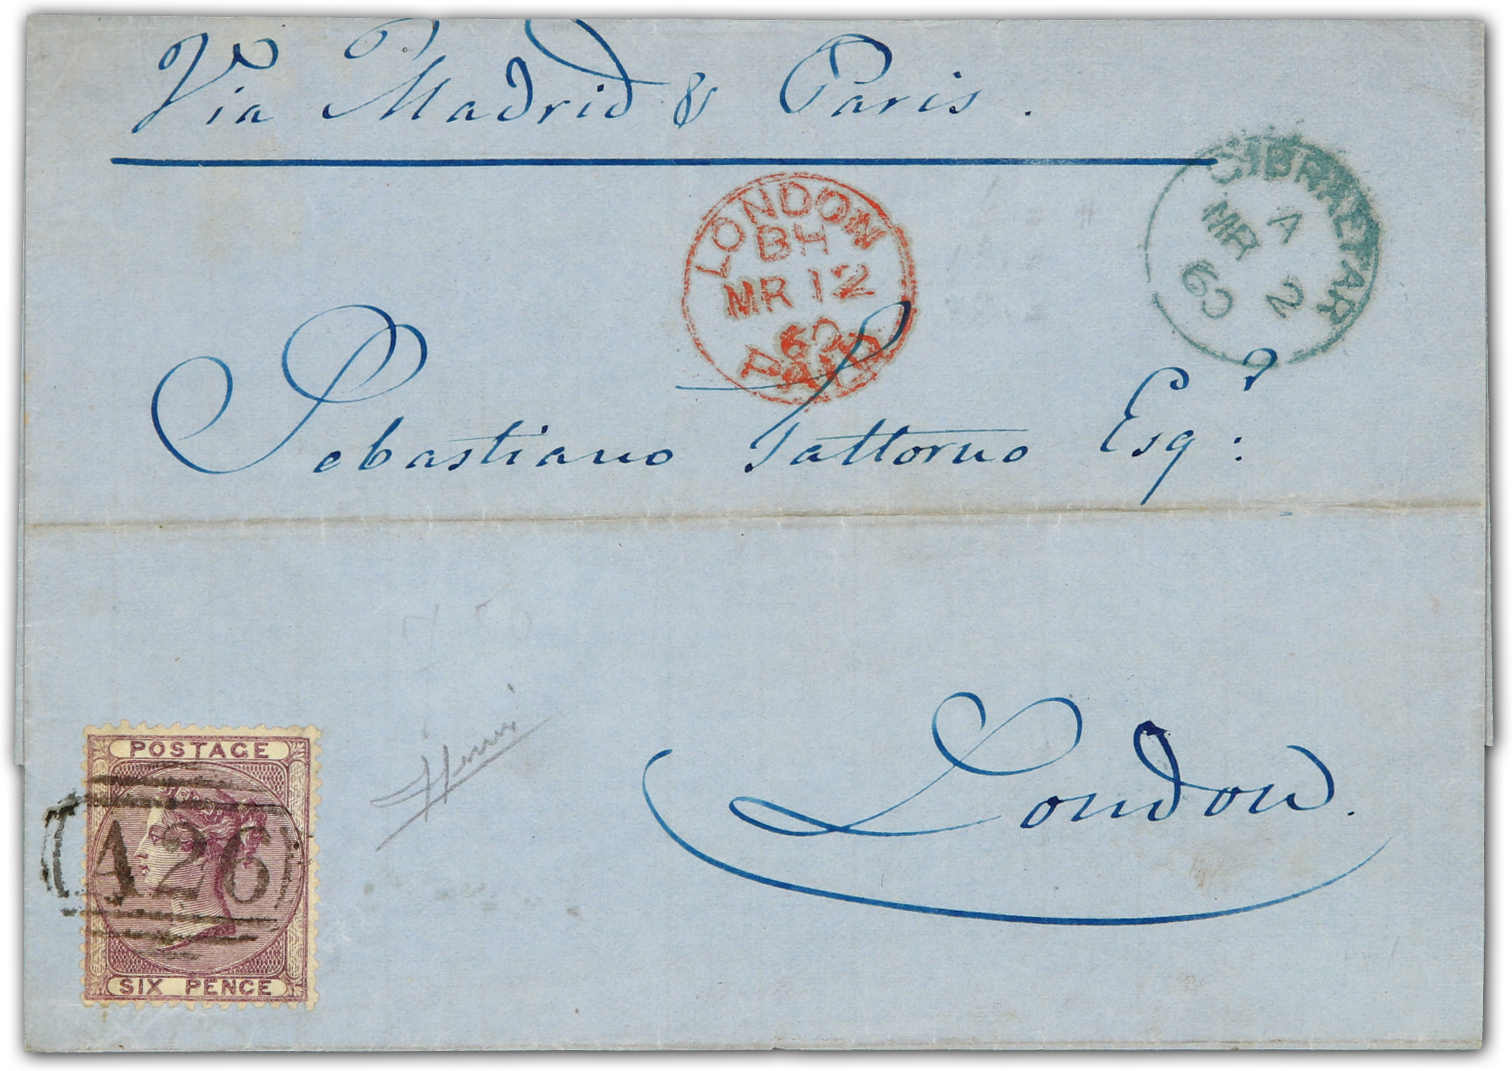 Via Madrid & Paris.
GIBRALTAR
A
MR 2
60
LONDON
BH
MR 12
60
PAID
Sebastiano Fattorno Esqr:
London.
POSTAGE
A26
SIX PENCE